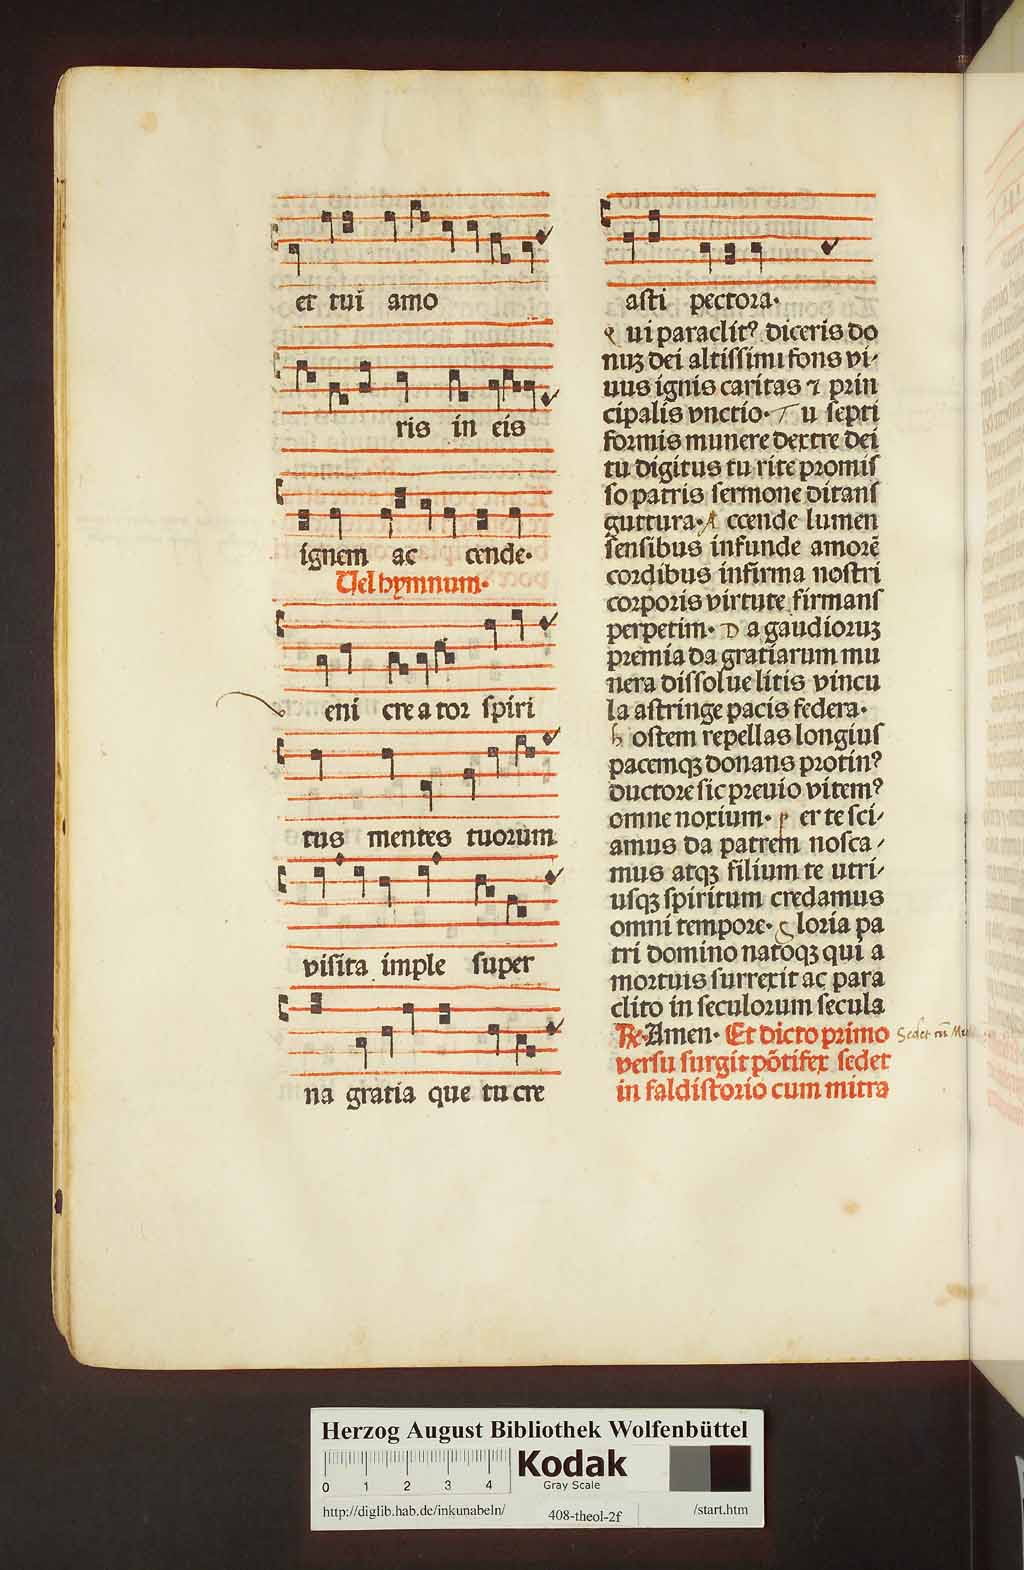 et tui amo
ris in eis
ignem ac cende·
Uel hymnum·
eni cre a tor ſpiri
tus mentes tuorum
viſita imple ſuper
na gratia que tu cre
aſti pectora·
Q ui paraclitꝰ diceris do
nuʒ dei altiſſimi fons vi-
uus ignis caritas ⁊ prin
cipalis vnctio· T u ſepti
formis munere dextre dei
tu digitus tu rite promiſ
ſo patris ſermone ditanſ
guttura· A ccende lumen
ſenſibus infunde amorē
cordibus infirma noſtri
corporis virtute firmanſ
perpetim· D a gaudioruʒ
premia da gratiarum mu
nera diſſolue litis vincu
la aſtringe pacis federa·
h oſtem repellas longiuſ
pacemqʒ donans protinꝰ
ductore ſic preuio vitemꝰ
omne noxium· p er te ſci-
amus da patrem noſca-
mus atqʒ filium te utri-
uſqʒ ſpiritum credamus
omni tempore· g loria pa
tri domino natoqʒ qui a
mortuis ſurrexit ac para
clito in ſeculorum ſecula
℞·Amen· Et dicto primo
verſu ſurgit põtifex ſedet
in faldiſtorio cum mitra
Sedet
Herzog August Bibliothek Wolfenbüttel
0 1 2 3 4
Kodak
Gray Scale
http://diglib.hab.de/inkunabeln/ 408-theol-2f /start.htm